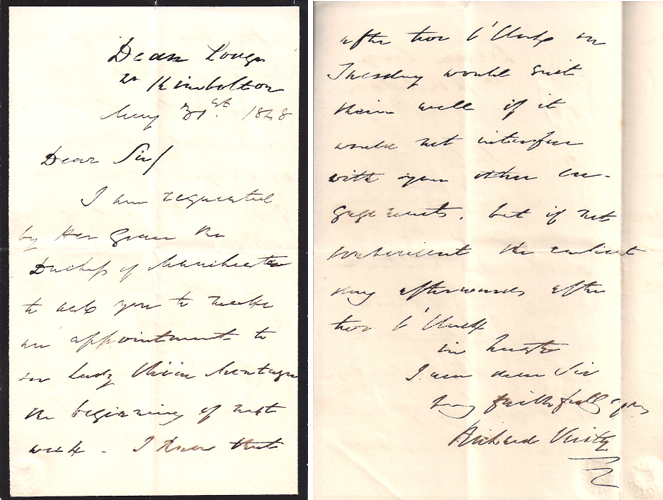 Dean Lodge
Nr Kimbolton
May 31st 1848
Dear Sir/
I am requested
by Her Grace the
Duchess of Manchester
to ask you to make
an appointment to
see Lady Olivia Montagu
the beginning of next
week. I know that
after two O'Clock on
Tuesday would suit
them well if it
would not interfere
with your other en-
gagements. but if not
convenient the earliest
day afterwards after
two O'Clock
in haste
I am dear Sir
very faithfully yrs
Richard Verity